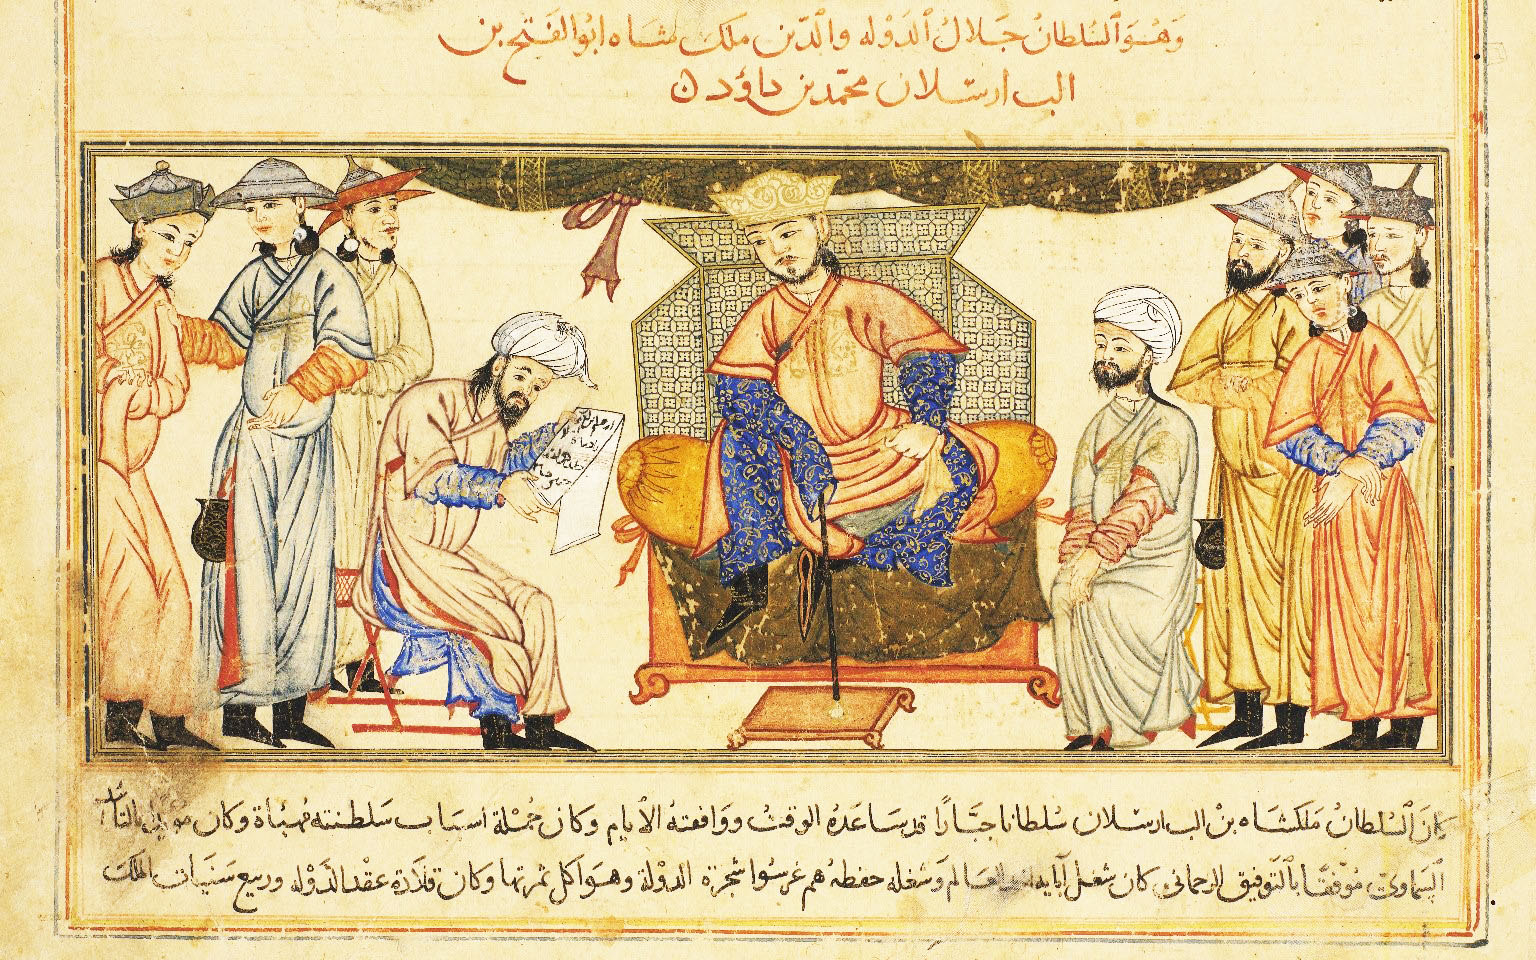 وَهُوَ ٱلسُّلطانُ جَلالُ ٱلدَوْله والدّين ملكشاه ابوالفَتح بن
الب ارسلان محمّد بن داوُد
كانَ ٱلسُّلطانُ مَلكشَاه بنْ الب ارسلان سُلطانا جبَّارًا قدسَاعَدَهُ الوقتُ ووَافقتهُ الأيام وكانَ جُمْلة اسبَاب سَلطنته مُهيّاة وكان
السَّماويّ مُوَفقًا بٱلتَّوفيق الرحمانيّ كان شغل آبايه وَشغله حفظهُ هم غرسُوا شجرَة الدوْلة وهُوَ اكل ثمرتها وكانَ قلادة عقْدالدَوْله وربيع سَنيات الملك